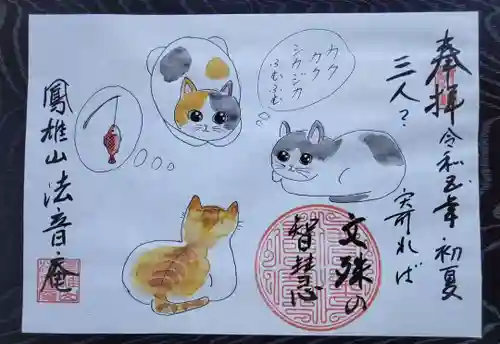 奉拝 令和五年 初夏
三人?
寄れば
文殊の
智恵
カクカク
シカジカ
ふむふむ
鳳雄山 法音庵